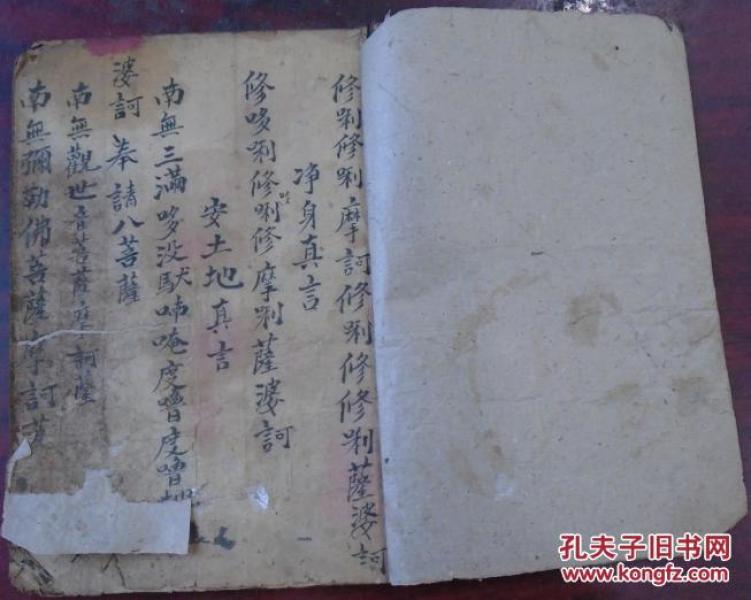 修唎修唎摩訶修唎修修唎薩婆訶
净身真言
修哆唎修唎修摩唎薩婆訶
安土地真言
南無三滿哆没馱喃唵度嚕度嚕地
婆訶 奉請八菩薩
南無觀世音菩薩摩訶薩
南無彌勒佛菩薩摩訶薩
孔夫子旧书网
www.kongfz.com